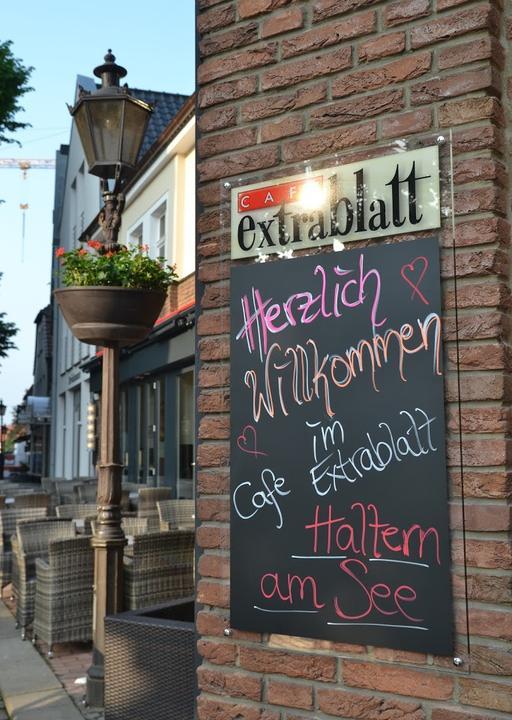 CAFE
extrablatt
Herzlich
Willkommen
im
Cafe Extrablatt
Haltern
am See